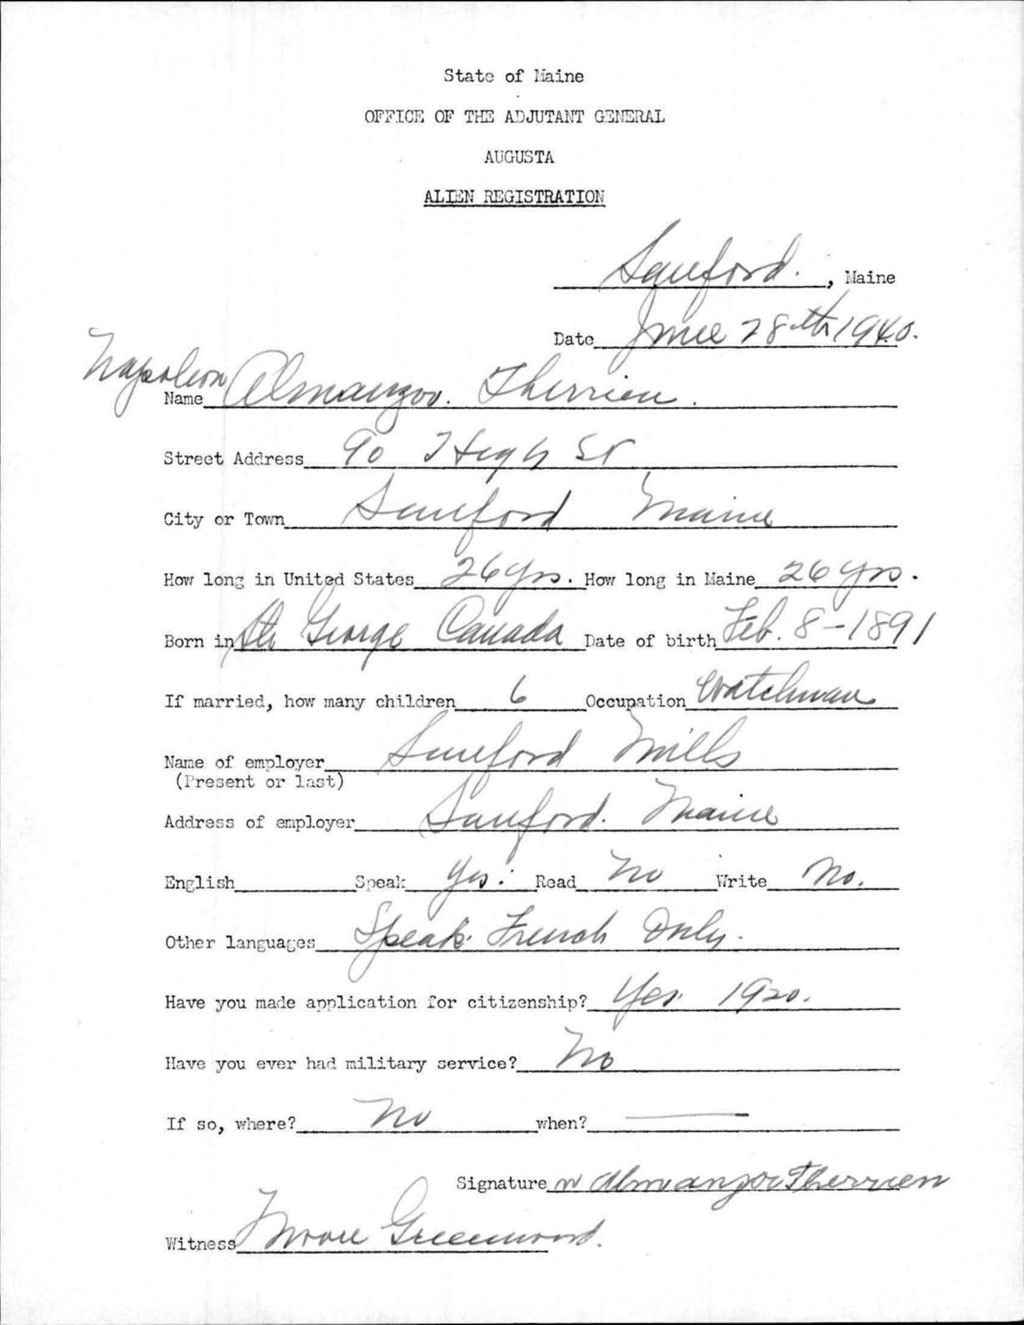 State of Maine
OFFICE OF THE ADJUTANT GENERAL
AUGUSTA
ALIEN REGISTRATION
Sanford. , Maine
Date June 28th 1940.
Napoleon
Name Almanzor. Therrien.
Street Address 90 High St
City or Town Sanford Maine
How long in United States 26 yrs. How long in Maine 26 yrs.
Born in St. George Canada Date of birth Feb. 8-1891
If married, how many children 6 Occupation Watchman
Name of employer Sanford Mills
(Present or last)
Address of employer Sanford. Maine
English Speak Yes. Read No Write No.
Other languages Speak French Only.
Have you made application for citizenship? Yes. 1920.
Have you ever had military service? No
If so, where? No when? —
Signature N Almanzor Therrien
Witness Greenwood.